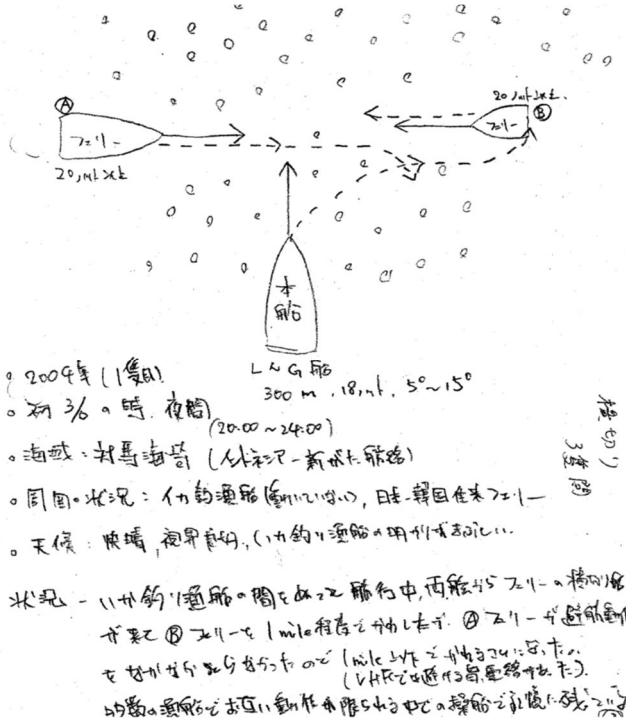 Ⓐ
フェリー
20ノット以上
20ノット以上.
フェリー
Ⓑ
本
船
LNG船
300m, 18ノット, 5°~15°
横切り
。2004年(1隻目)
。初 3/0 の時. 夜間
(20:00~24:00)
。海域:対馬海峡(インドネシア-新がた航路)
。周囲の状況:イカ釣漁船(動いていない), 日本-韓国往来フェリー
。天候:快晴, 視界良好, (いか釣り漁船の明かりがまぶしい.
状況-いか釣り漁船の間をぬって航行中, 両舷からフェリーの横切り船
が来てⒷフェリーを1mile程度でかわしたが, Ⓐフェリーが避航動作
をなかなかとらなかったので1mile以下でかわることになった.
(VHFでも避ける旨連絡があった).
多数の漁船でお互い動作が限られる中での操船で記憶に残っている